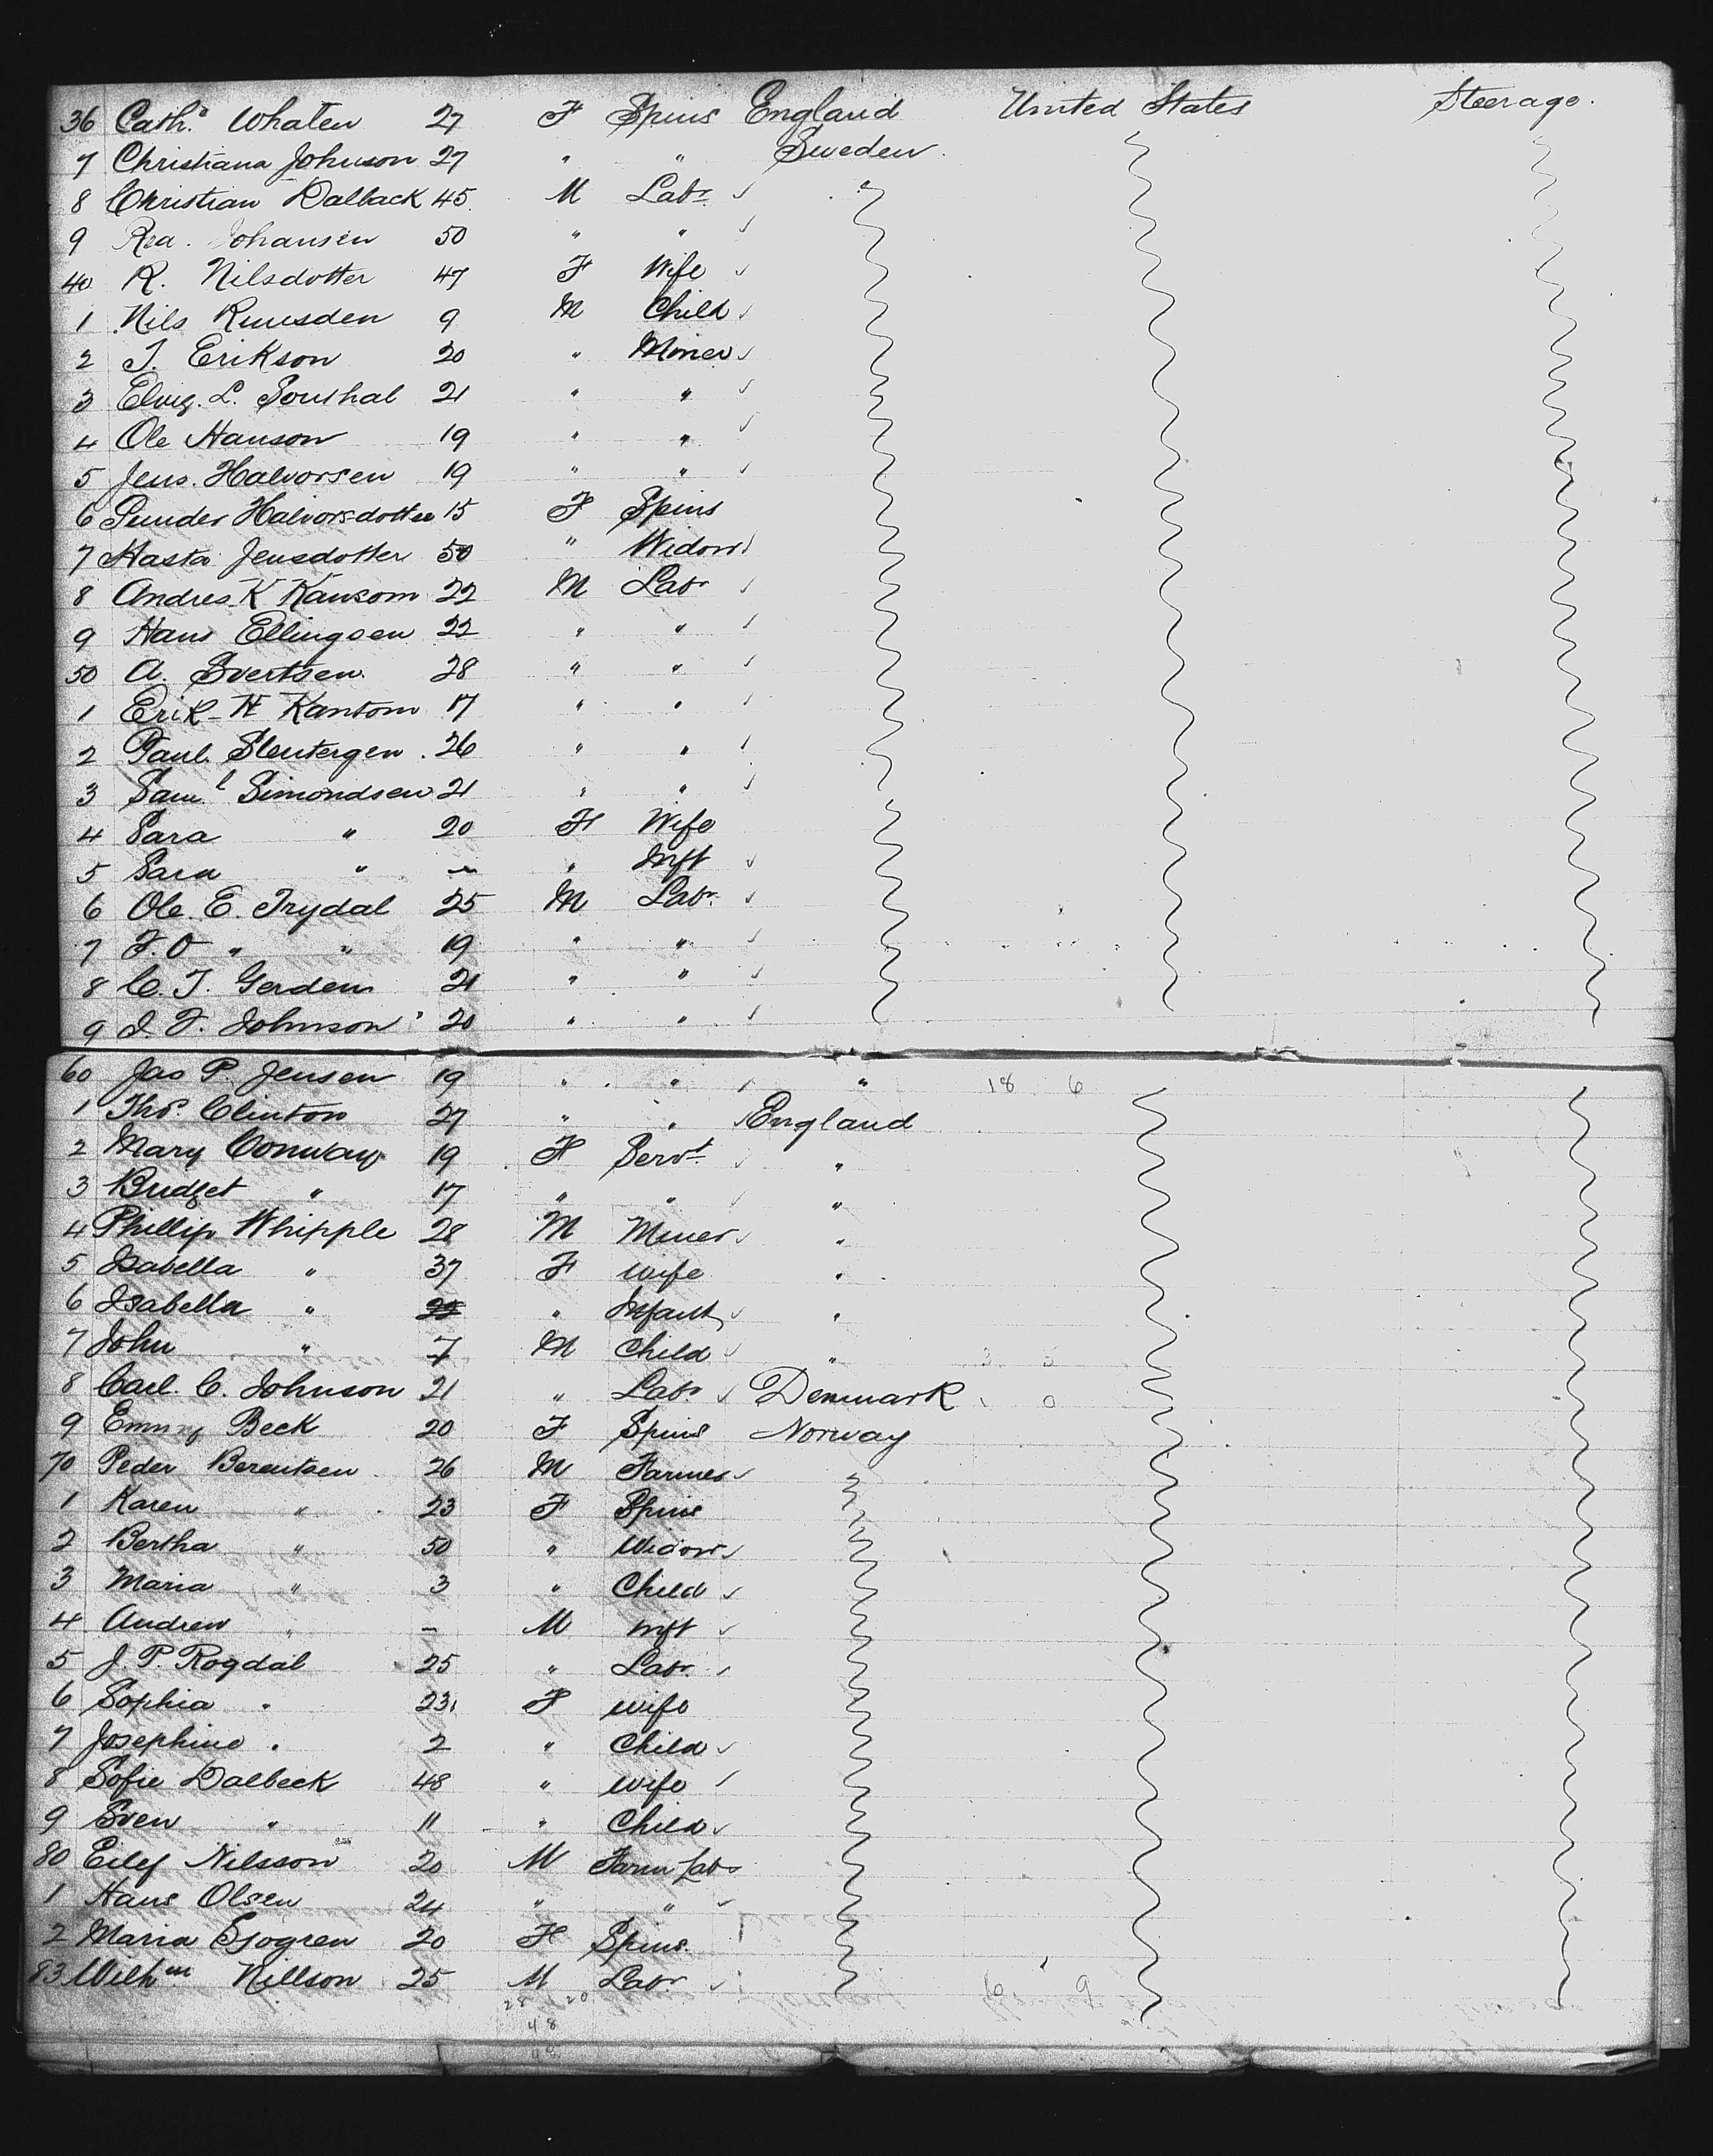 36 Cath.ᵉ Whalen 27 F Spins England United States Steerage.
7 Christiana Johnson 27 " " Sweden.
8 Christian Dalback 45. M Labr "
9 Johansen 50 " "
40 R. Nilsdotter 47 F Wife
1 Nils 9 M Child
2 T. Erikson 20 " Miner
3 L. Southal 21 " "
4 Ole Hanson 19 " "
5 Jens. Halvorsen 19 " "
6 Gunder Halvorsdotter 15 F Spins
7 Hasta Jensdotter 50 " Widow
8 Andres K Kansom 22 M Labr
9 Hans Ellingsen 22 " "
50 A. Svertsen. 28 " "
1 Erik H Kantom 17 " "
2 Paul. Slentergen. 26 " "
3 Saml Simondsen 21 " "
4 Sara " 20 F Wife
5 Sara " - " Inft
6 Ole. E. Trydal 25 M Labr.
7 F. O " " 19 " "
8 C. T. Gerden 21 " "
9 J. F. Johnson 20 " "
60 Jas P. Jensen 19 " " " 18 6
1 Thos. Clinton 27 " " England
2 Mary Conway 19 F Servt. "
3 Bridget " 17 " " "
4 Phillip Whipple 28 M Miner "
5 Isabella " 37 F wife "
6 Isabella " " Infant "
7 John " 7 M Child " 3 5
8 Carl. C. Johnson 21 " Labr Denmark 0
9 Emmy Beck 20 F Spins Norway
70 Peder Berentsen 26 M Farmer "
1 Karen " 23 F Spins
2 Bertha " 50 " Widow
3 Maria " 3 " Child
4 Andrew " - M Inft
5 J. P. Rogdal 25 " Labr.
6 Sophia " 23 F wife
7 Josephine " 2 " Child
8 Sofie Dalbeck 48 " wife
9 Sven " 11 " Child
80 Eilef Nilsson 20 M Farm Labr
1 Hans Olsen 24 " "
2 Maria Sjogren 20 F Spins.
83 Wilhm Nillson 25 M Labr 6 9
28 20
48
48